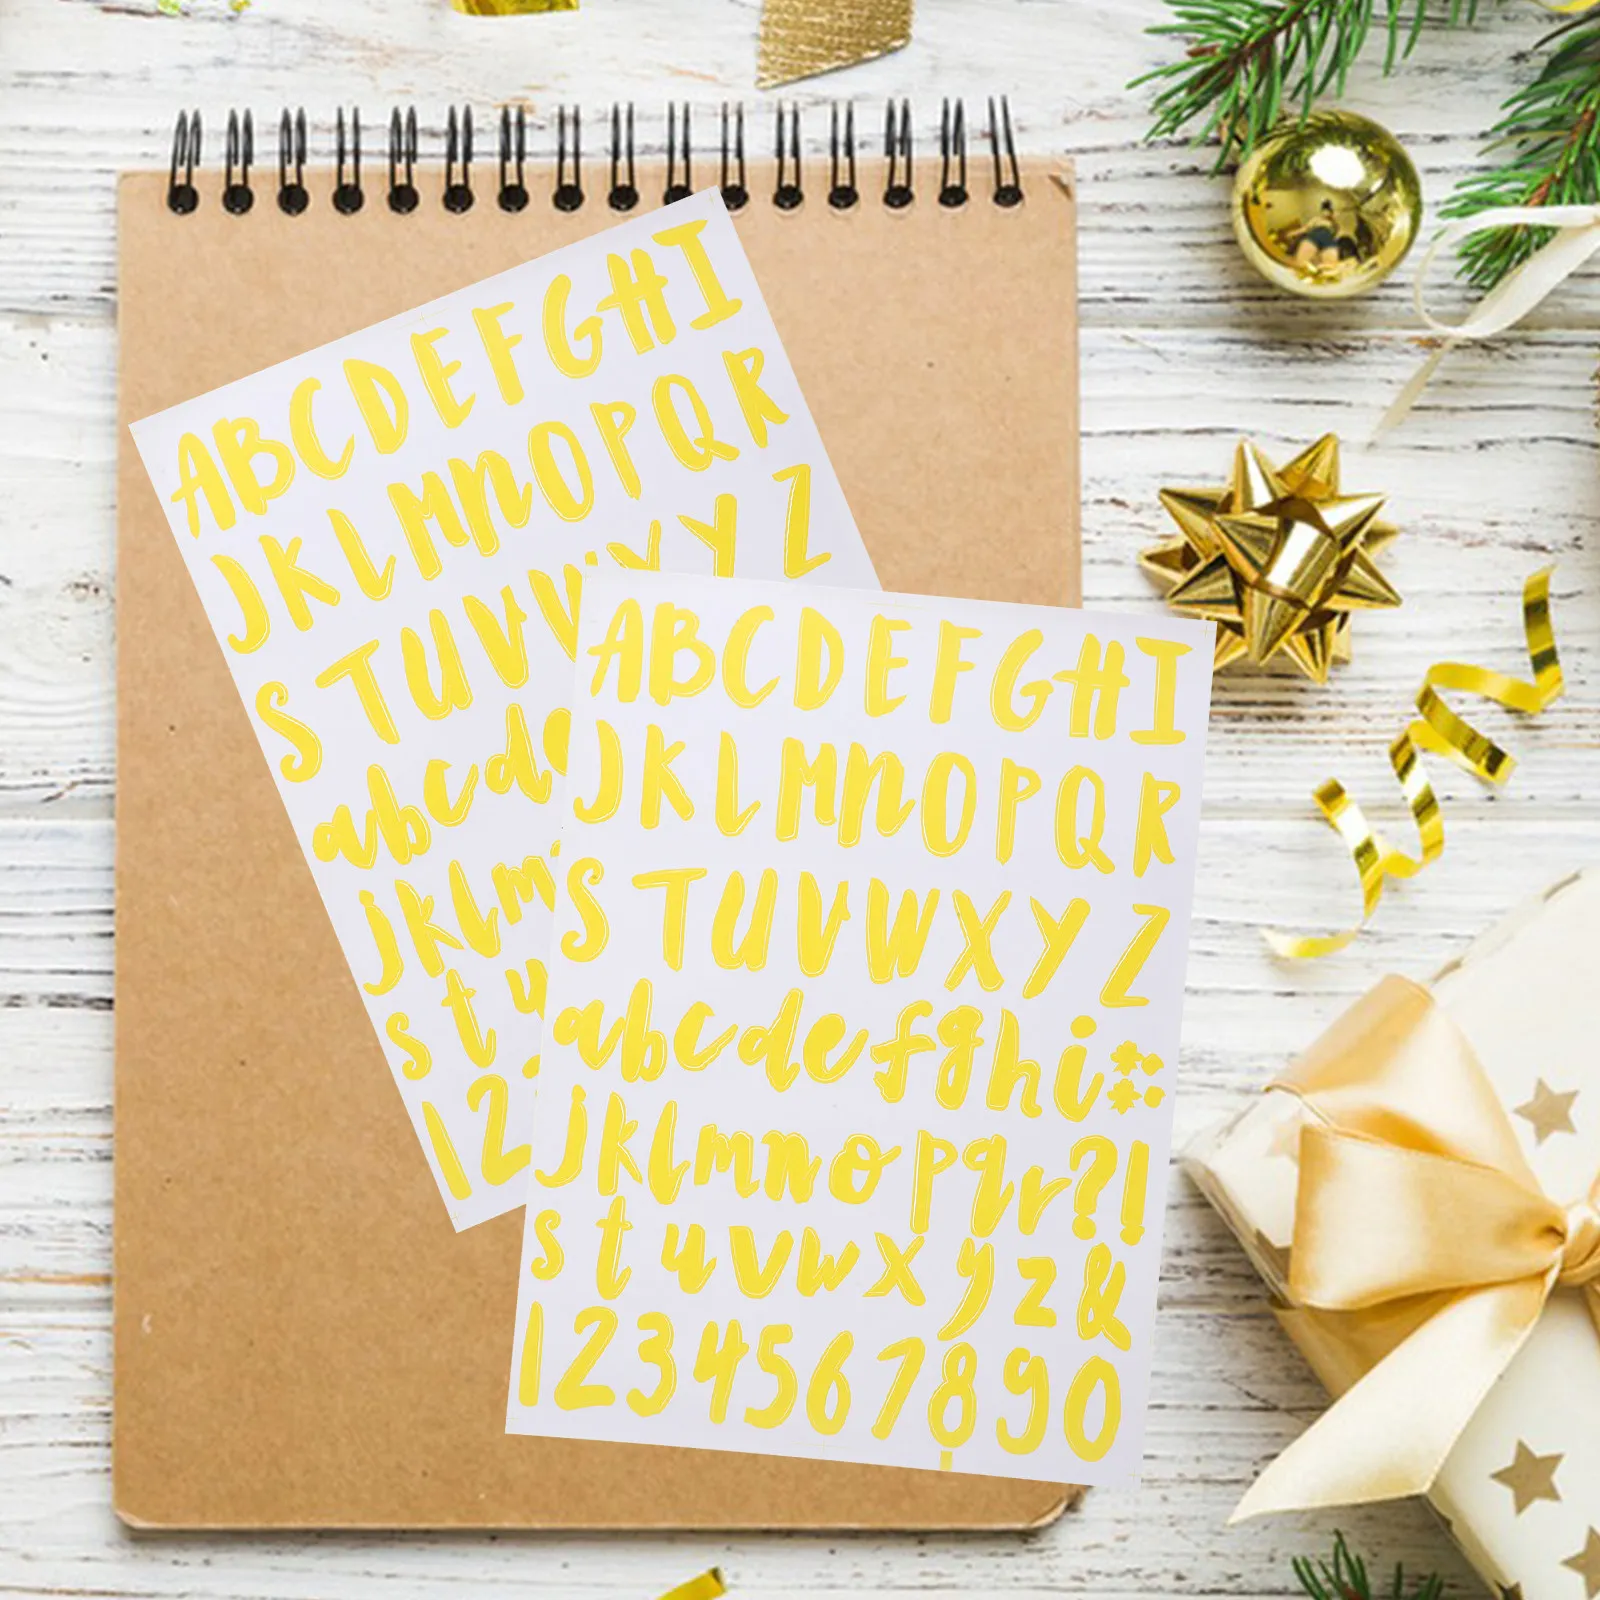 ABCDEFGHI
JKLMNOPQR
STUVWXYZ
abcd
jklm
stu
12
ABCDEFGHI
JKLMNOPQR
STUVWXYZ
abcdefghi
jklmnopqr?!
stuvwxyz&
1234567890